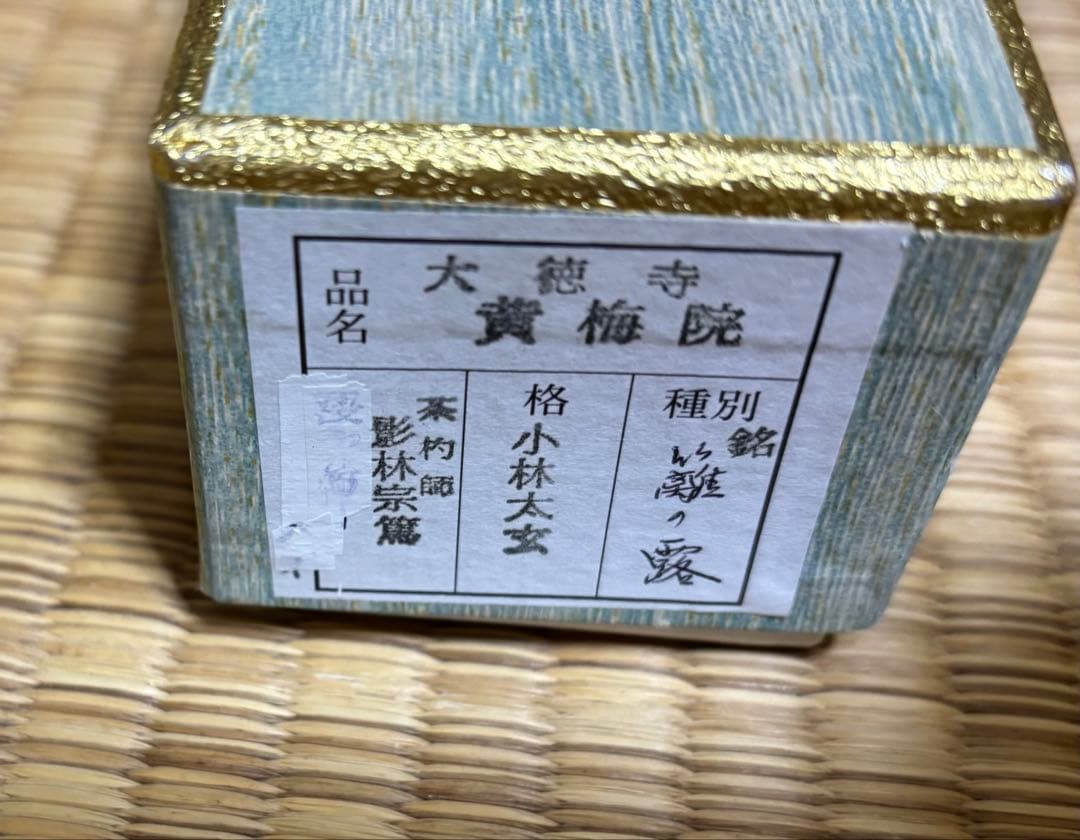 品名
大徳寺
黄梅院
種別
銘
籬の露
格
小林太玄
茶杓師
影林宗篤